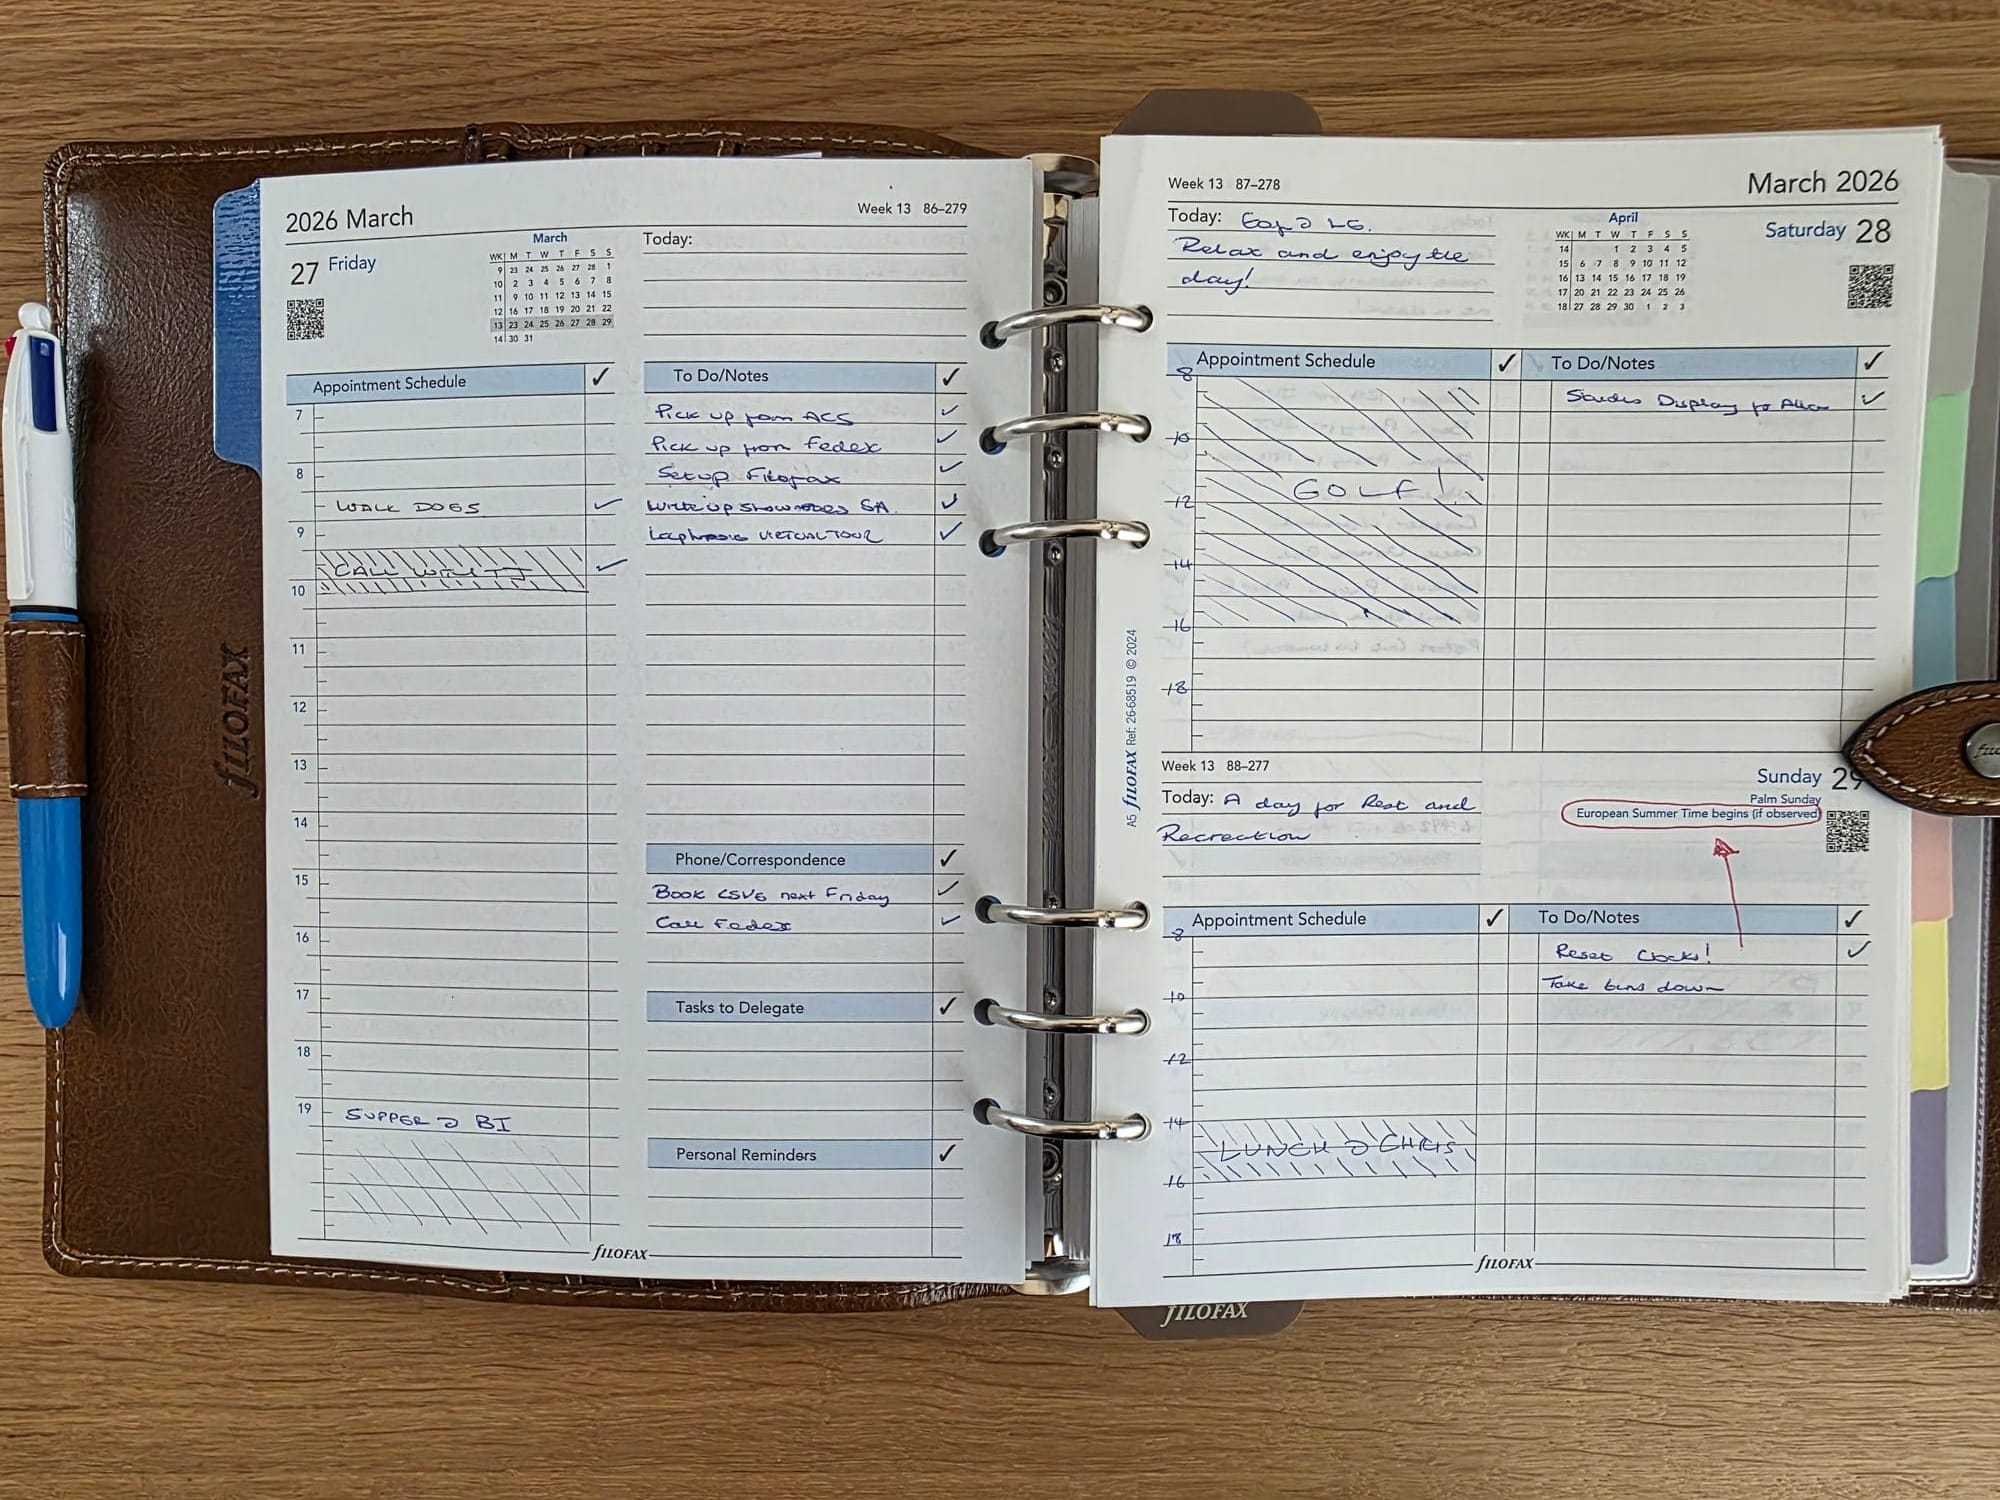 2026 March
Week 13 86–279
27 Friday
March
WK M T W T F S S
9 23 24 25 26 27 28 1
10 2 3 4 5 6 7 8
11 9 10 11 12 13 14 15
12 16 17 18 19 20 21 22
13 23 24 25 26 27 28 29
14 30 31
Today:
Appointment Schedule ✓
7
8
WALK DOGS ✓
9
CALL WITH TJ ✓
10
11
12
13
14
15
16
17
18
19 SUPPER @ BI
To Do/Notes ✓
Pick up from ACS ✓
Pick up from Fedex ✓
Setup Filofax ✓
Write up show notes SA ✓
VIRTUAL TOUR ✓
Phone/Correspondence ✓
Book next Friday ✓
Call Fedex ✓
Tasks to Delegate ✓
Personal Reminders ✓
fILOFAX
fILOFAX
A5 fILOFAX Ref: 26-68519 © 2024
Week 13 87–278
March 2026
Today:
Relax and enjoy the
day!
April
WK M T W T F S S
14 1 2 3 4 5
15 6 7 8 9 10 11 12
16 13 14 15 16 17 18 19
17 20 21 22 23 24 25 26
18 27 28 29 30 1 2 3
Saturday 28
Appointment Schedule ✓
8
10
GOLF!
12
14
16
18
To Do/Notes ✓
Display to ✓
Week 13 88–277
Sunday 29
Palm Sunday
European Summer Time begins (if observed)
Today: A day for Rest and
Recreation
Appointment Schedule ✓
8
10
12
14
LUNCH @ CHRIS
16
18
To Do/Notes ✓
Reset Clocks! ✓
Take bins down
fILOFAX
fILOFAX